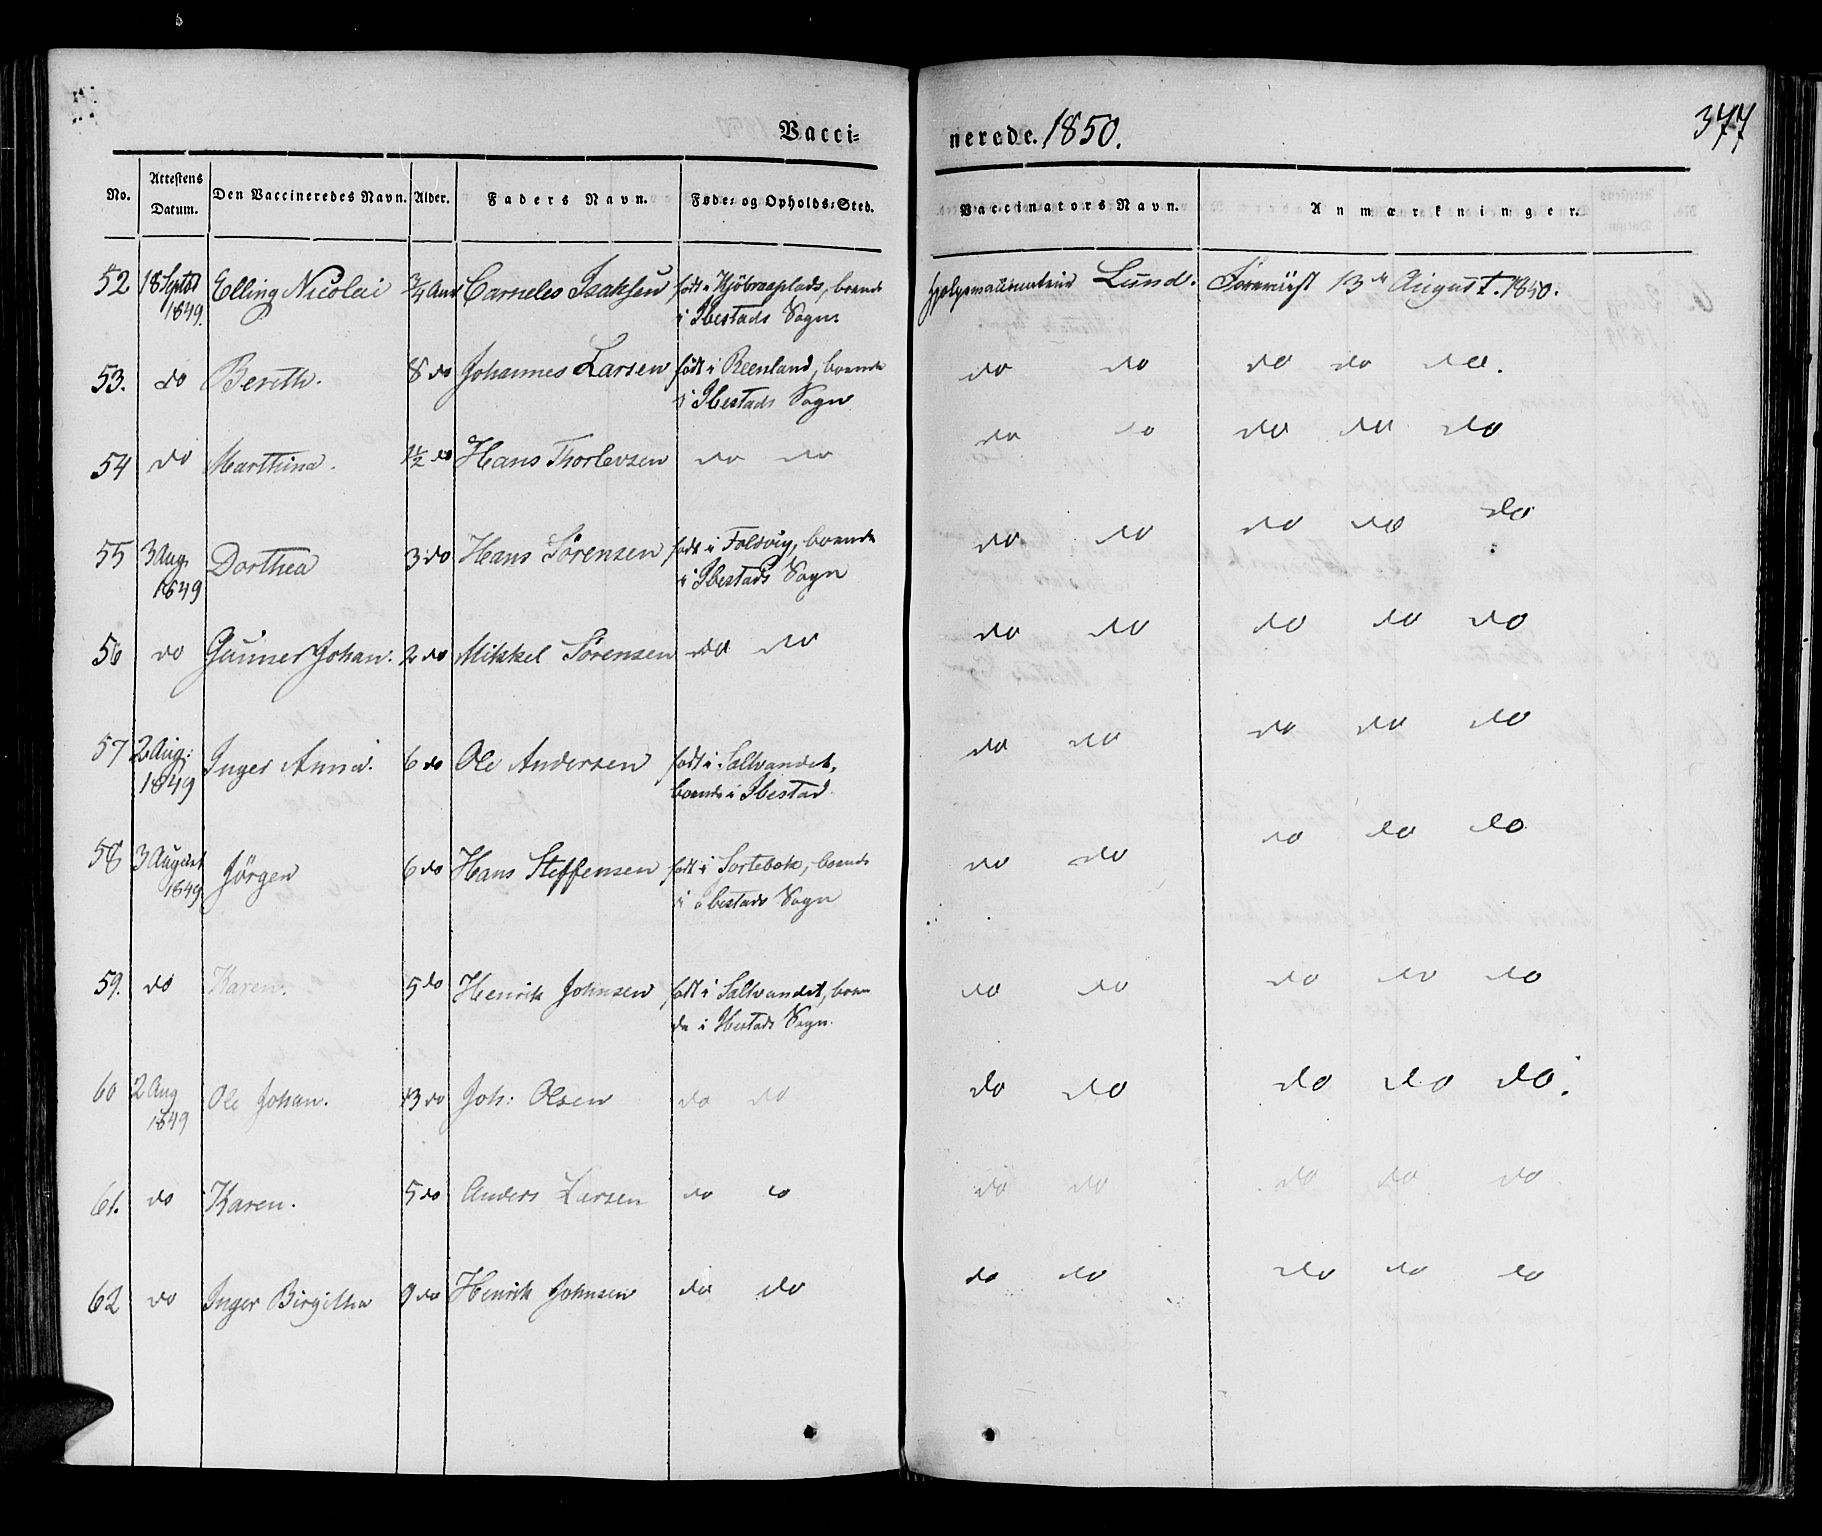 377
Vacci- nerede. 1850.
No. Attestens Datum. Den Vaccineredes Navn. Alder. Faders Navn. Føde- og Opholds-Sted. Vaccinators Navn. Anmærkninger.
52 18 Septbr Elling Nicolai 3/4 Aar Carneles Isaksen født i Kjöbraeplads, boende Lund. Foreviist 13de August. 1850.
1849. i Ibestads Sogn
53. do Berith. 8 do Johannes Larsen født i Reenland, boende do do do do do.
i Ibestads Sogn
54 do Marthina. 1 1/2 do Hans Thorlevsen do do do do do do do
55 3 Aug. Dorthea 3 do Hans Sörensen født i Foldvig, boende do do do do do
1849 i Ibestads Sogn
56 do Gunner Johan. 2 do Mikkel Sörensen do do do do do do do
57 2 Aug: Inger Anna. 6 do Ole Andersen født i Saltvandet, do do do do do
1849 boende i Ibestad
58 3 August Jörgen 6 do Hans Steffensen født i Sortebek, boende do do do do do
1849. i Ibestads Sogn
59. do Karen. 5 do Henrik Johnsen født i Saltvandet, boen- do do do do do
de i Ibestads Sogn.
60 2 Aug Ole Johan. 13 do Joh: Olsen do do do do do do do.
1849
61. do Karen. 5 do Anders Larsen do do do do do do do
62 do Inger Birgitha 9 do Henrik Johnsen do do do do do do do